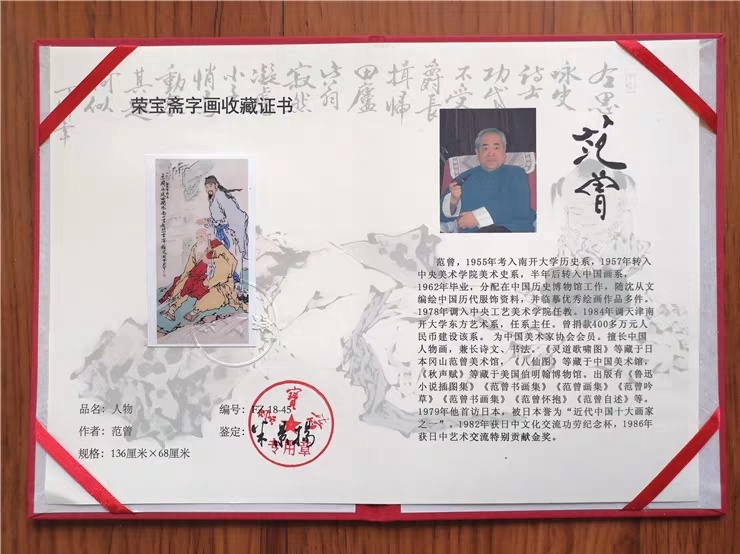 荣宝斋字画收藏证书
品名：人物
编号：FZ-18-45
作者：范曾
鉴定：
规格：136厘米×68厘米
专用章
范曾
范曾，1955年考入南开大学历史系，1957年转入
中央美术学院美术史系，半年后转入中国画系，
1962年毕业，分配在中国历史博物馆工作，随沈从文
编绘中国历代服饰资料，并临摹优秀绘画作品多件。
1978年调入中央工艺美术学院任教。1984年调天津南
开大学东方艺术系，任系主任。曾捐款400多万元人
民币建设该系。 为中国美术家协会会员。擅长中国
人物画，兼长诗文、书法。《灵道歌啸图》等藏于日
本冈山范曾美术馆，《八仙图》等藏于中国美术馆，
《秋声赋》等藏于美国伯明翰博物馆。出版有《鲁迅
小说插图集》《范曾书画集》《范曾画集》《范曾吟
草》《范曾书画集》《范曾怀抱》《范曾自述》等。
1979年他首访日本，被日本誉为“近代中国十大画家
之一”。1982年获日中文化交流功劳纪念杯，1986年
获日中艺术交流特别贡献金奖。